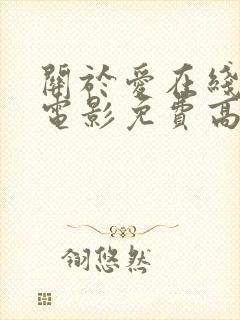 關於愛在綫
電影免費高
翎悠然